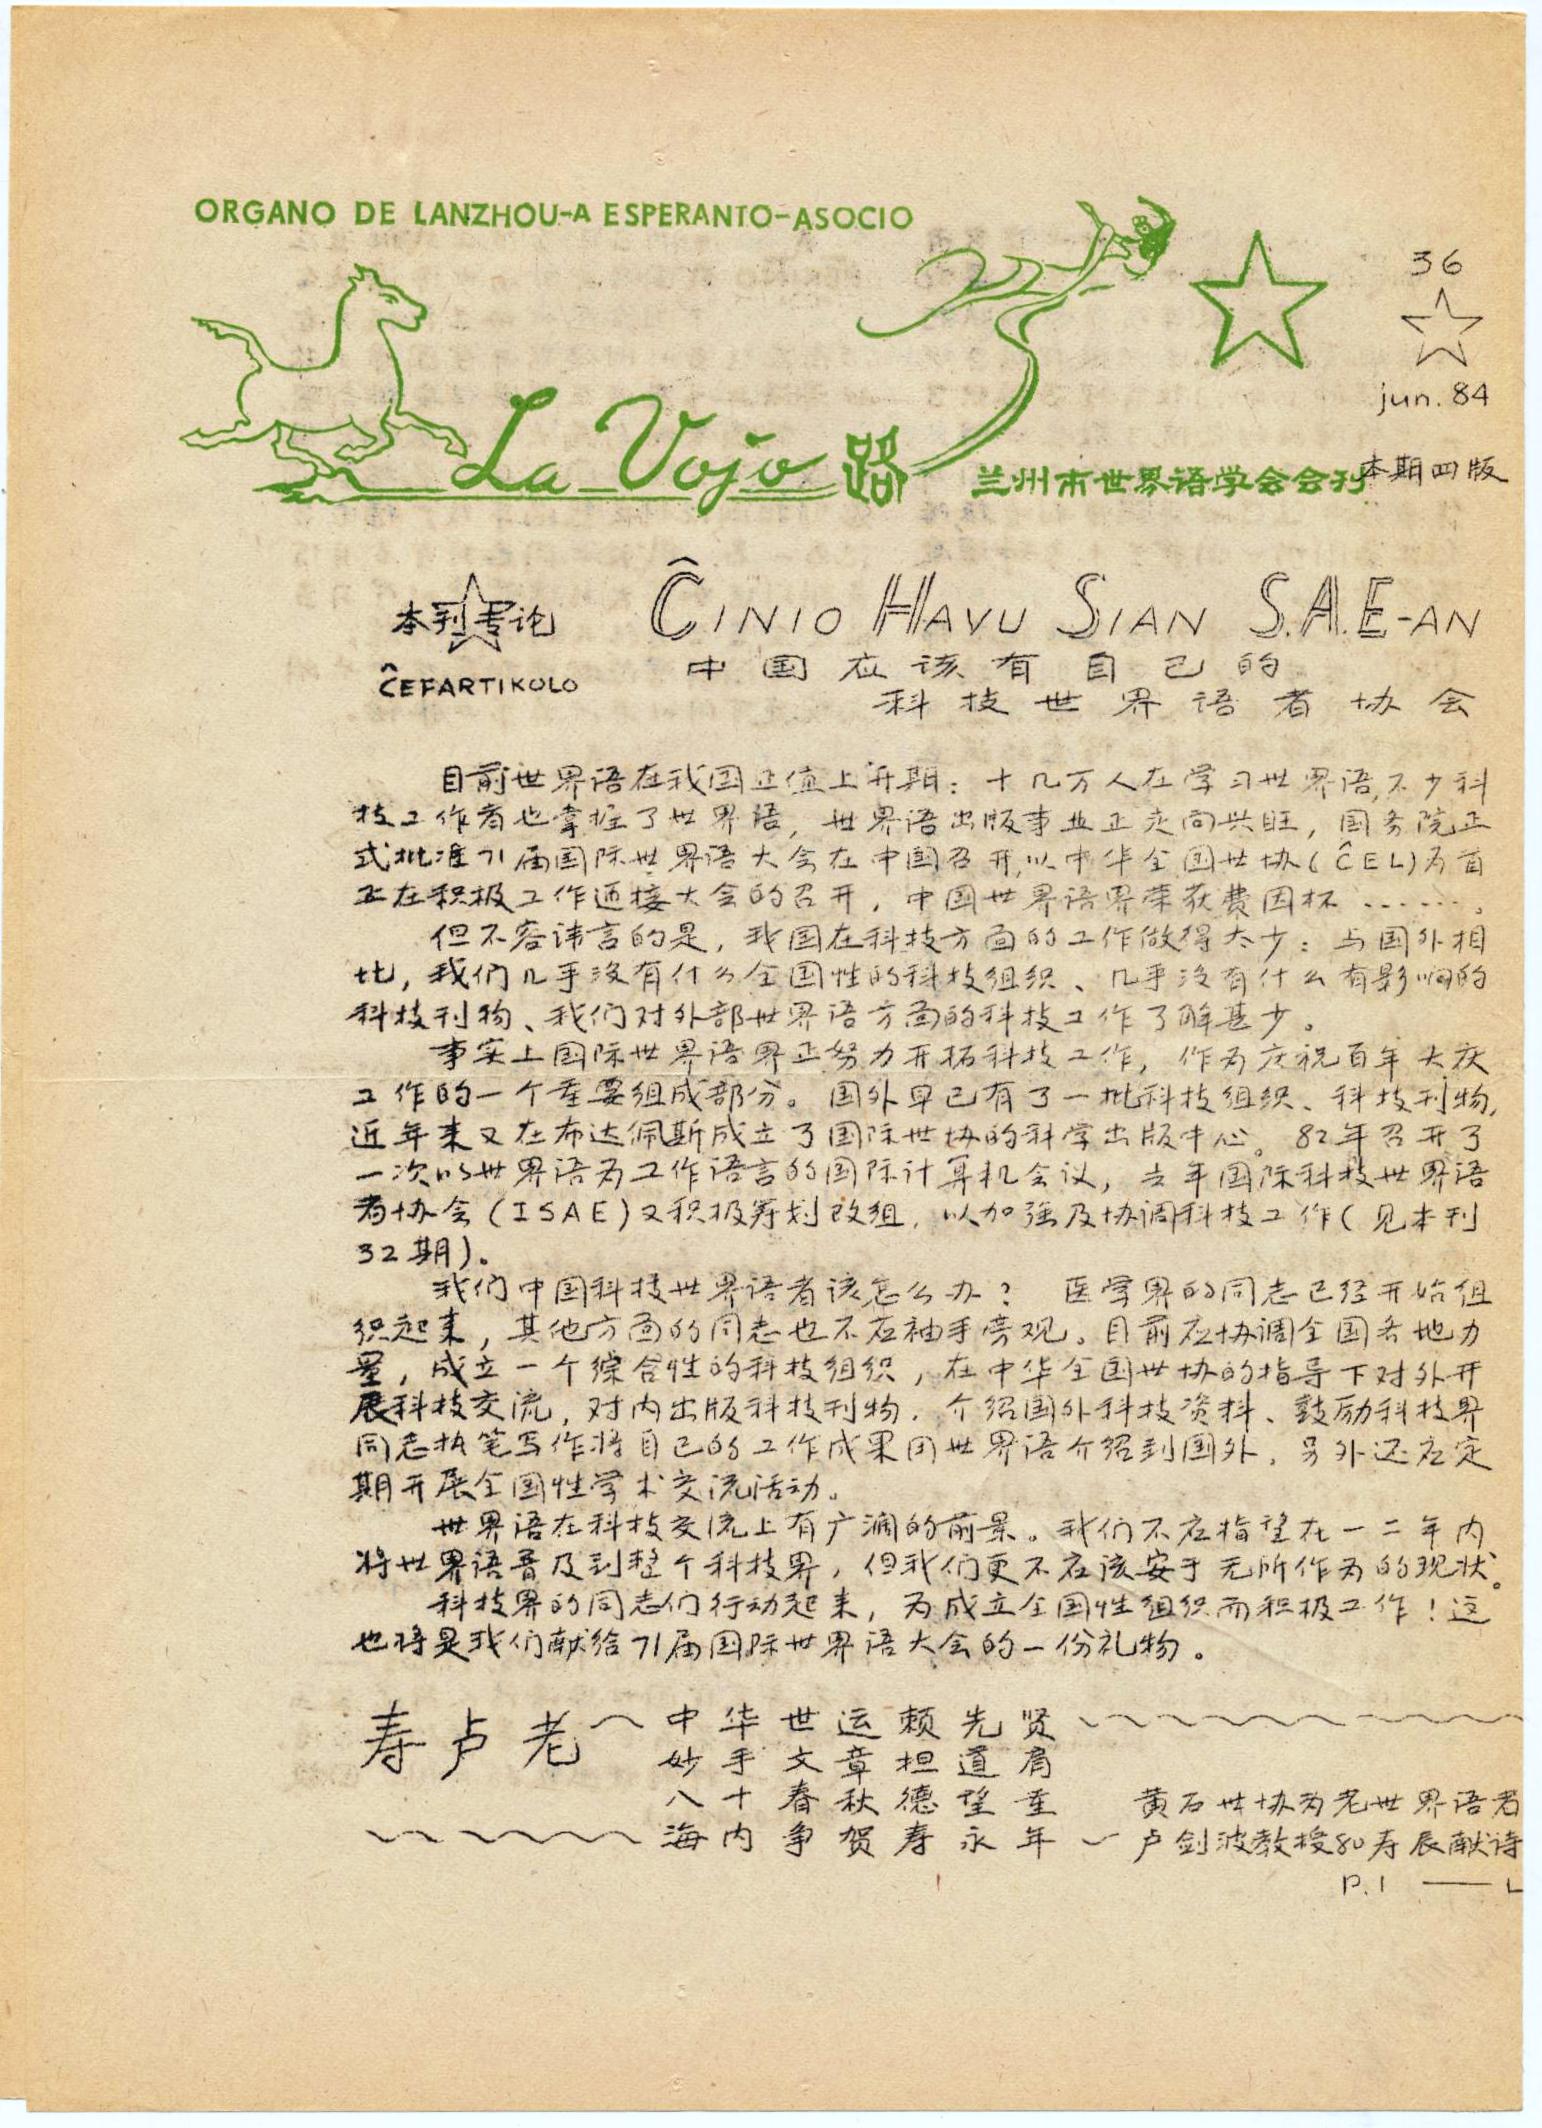 ORGANO DE LANZHOU-A ESPERANTO-ASOCIO
36
jun. 84
La Vojo 路
兰州市世界语学会会刊
本期四版
本刊专论
ĈEFARTIKOLO
ĈINIO HAVU SIAN S.A.E-AN
中国应该有自己的
科技世界语者协会
目前世界语在我国正值上升期：十几万人在学习世界语,不少科
技工作者也掌握了世界语，世界语出版事业正走向兴旺，国务院正
式批准71届国际世界语大会在中国召开,以中华全国世协(ĈEL)为首
正在积极工作迎接大会的召开，中国世界语界荣获费因杯……。
但不容讳言的是，我国在科技方面的工作做得太少：与国外相
比，我们几乎没有什么全国性的科技组织、几乎没有什么有影响的
科技刊物、我们对外部世界语方面的科技工作了解甚少。
事实上国际世界语界正努力开拓科技工作，作为庆祝百年大庆
工作的一个重要组成部分。国外早已有了一批科技组织、科技刊物,
近年来又在布达佩斯成立了国际世协的科学出版中心。82年召开了
一次以世界语为工作语言的国际计算机会议，去年国际科技世界语
者协会(ISAE)又积极筹划改组，以加强及协调科技工作(见本刊
32期)。
我们中国科技世界语者该怎么办？ 医学界的同志已经开始组
织起来，其他方面的同志也不应袖手旁观。目前应协调全国各地力
量，成立一个综合性的科技组织，在中华全国世协的指导下对外开
展科技交流，对内出版科技刊物，介绍国外科技资料、鼓励科技界
同志执笔写作将自己的工作成果用世界语介绍到国外，另外还应定
期开展全国性学术交流活动。
世界语在科技交流上有广阔的前景。我们不应指望在一二年内
将世界语普及到整个科技界，但我们更不应该安于无所作为的现状。
科技界的同志们行动起来，为成立全国性组织而积极工作！这
也将是我们献给71届国际世界语大会的一份礼物。
寿卢老
中华世运赖先贤
妙手文章担道肩
八十春秋德望重
海内争贺寿永年
黄石世协为老世界语者
卢剑波教授80寿辰献诗
P.1 —— L